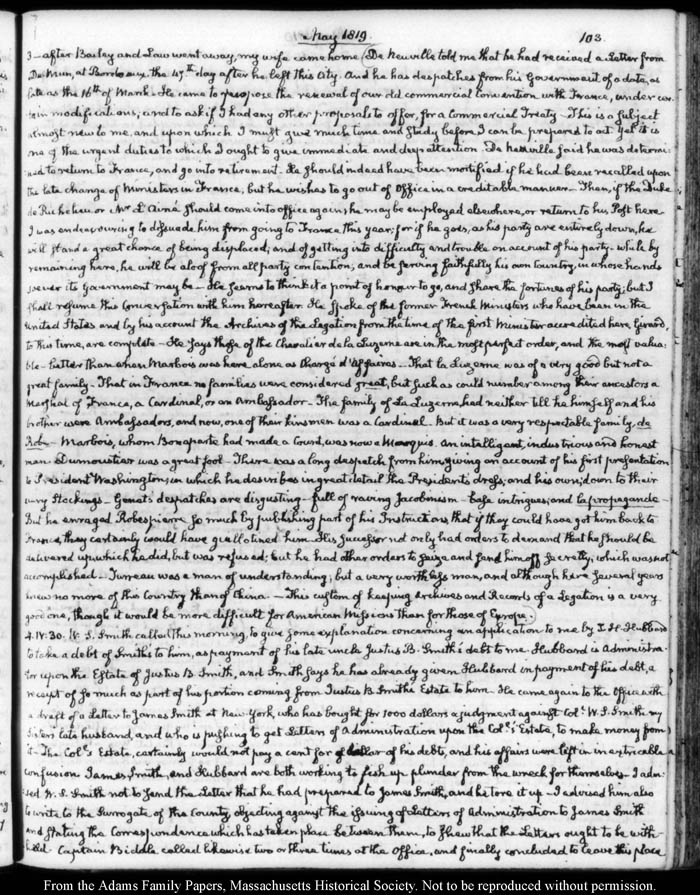 May 1819.
103.
3 – after Bailey and Law went away, my wife came home. De Neuville told me that he had received a Letter from
De Mun, at Bordeaux the 45th day after he left this City. And he has despatches from his Government of a date, as
late as the 16th of March. He came to propose the renewal of our old commercial Convention with France, under cer-
tain modifications; and to ask if I had any other proposals to offer, for a Commercial Treaty – This is a subject
almost new to me, and upon which I must give much time and Study before I can be prepared to act. Yet it is
one of the urgent duties to which I ought to give immediate and deep attention. De Neuville said he was determi-
ned to return to France, and go into retirement. He should indeed have been mortified if he had been recalled upon
the late change of Ministers in France, but he wishes to go out of Office in a creditable manner – Then, if the Duke
de Richelieu or Mr L'Ainé should come into office again, he may be employed elsewhere, or return to his Post here.
I was endeavouring to dissuade him from going to France this year; for if he goes, as his party are entirely down, he
will stand a great chance of being displaced; and of getting into difficulty and trouble on account of his party. While by
remaining here, he will be aloof from all party contention, and be serving faithfully his own Country, in whose hands
soever its Government may be – He seems to think it a point of honour to go, and share the fortunes of his party; but I
shall resume this Conversation with him hereafter. He spoke of the former French Ministers who have been in the
United States and by his account the Archives of the Legation from the time of the first Minister accredited here, Gerard,
to this time, are complete – He says those of the Chevalier de la Luzerne are in the most perfect order, and the most valua-
ble – better than when Marbois was here alone as Chargé d'Affaires – That la Luzerne was of a very good but not a
great family – That in France no families were considered great, but such as could number among their ancestors a
Marshal of France, a Cardinal, or an Ambassador – The family of La Luzerne had neither till he himself and his
brother were Ambassadors, and now, one of their kinsmen was a Cardinal. But it was a very respectable family, de
Robe – Marbois, whom Bonaparte had made a Count, was now a Marquis. An intelligent, industrious and honest
man. Dumoustier was a great fool – There was a long despatch from him, giving an account of his first presentation
to President Washington, in which he describes in great detail the President's dress, and his own, down to their
very Stockings – Genet's despatches are disgusting – full of raving Jacobinism – base intrigues, and la propagande –
But he enraged Robespierre so much by publishing part of his Instructions, that if they could have got him back to
France, they certainly would have guillotined him. His successor not only had orders to demand that he should be
delivered up, which he did, but was refused; but he had other orders to seize and send him off secretly, which was not
accomplished – Turreau was a man of understanding; but a very worthless man, and although here several years
knew no more of this Country than of China – This custom of keeping Archives and Records of a Legation is a very
good one, though it would be more difficult for American Missions than for those of Europe.
4. IV:30. W. S. Smith called this morning, to give some explanation concerning an application to me by I. H. Hubbard
to take a debt of Smith's to him, as payment of his late uncle Justus B. Smith's debt to me. Hubbard is Administra-
tor upon the Estate of Justus B. Smith, and Smith says he has already given Hubbard in payment of his debt, a
receipt of so much as part of his portion coming from Justus B. Smith's Estate to him. He came again to the Office with
a draft of a Letter to James Smith at New-York, who has bought for 1000 dollars a judgment against Col. W. S. Smith, my
Sister's late husband, and who is pushing to get Letters of Administration upon the Col.'s Estate, to make money from
it – The Col.'s Estate, certainly would not pay a cent for a dollar of his debts, and his affairs were left in inextricable
confusion. James Smith, and Hubbard are both working to fish up plunder from the wreck for themselves. I advi-
sed W. S. Smith not to send the Letter that he had prepared to James Smith, and he tore it up – I advised him also
to write to the Surrogate of the County objecting against the issuing of Letters of Administration to James Smith
and stating the Correspondence which has taken place between them, to shew that the Letters ought to be with-
held. Captain Biddle called likewise two or three times at the Office, and finally concluded to leave this place
From the Adams Family Papers, Massachusetts Historical Society. Not to be reproduced without permission.